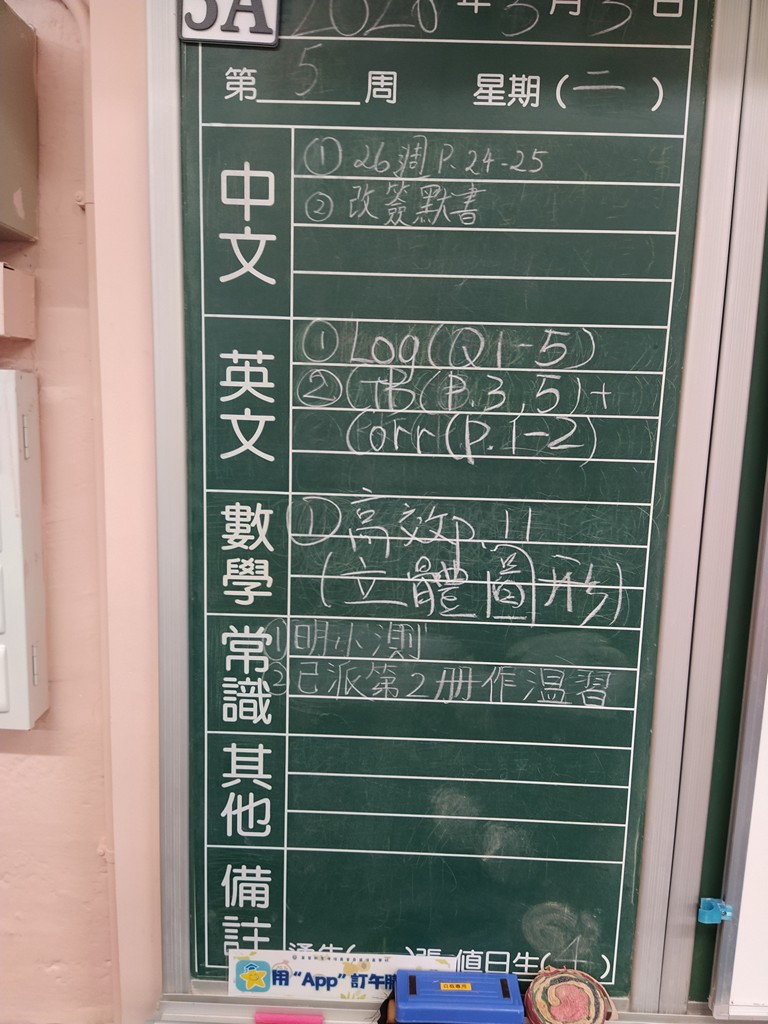 5A
2026年3月3日
第5周 星期(二)
中文
① 26週 P.24-25
② 改簽默書
英文
① Log(Q1-5)
② GB(P.3,5)+
Corr(p.1-2)
數學
① 高效p.11
(立體圖形)
常識
① 明小測
② 已派第2冊作温習
其他
備註
通告( )張 值日生(4)
用“App”訂午